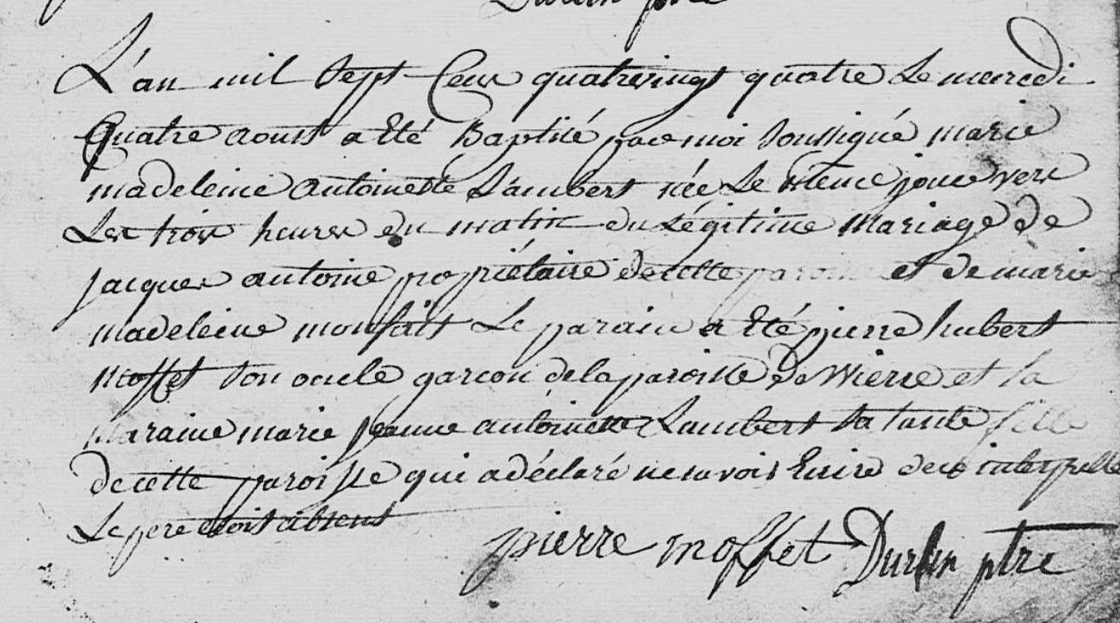 Durlin ptre
L'an mil sept cens quatrevingt quatre le mercredi
quatre aoust a été baptisé par moi soussigné marie
madeleine antoinette Lambert née le même jour vers
Les trois heures du matin du légitime mariage de
jacques antoine propriétaire de cette paroisse et de marie
madeleine monfait Le parain a été pierre hubert
moffet son oncle garcon de la paroisse de Wierre et la
maraine marie jeanne antoinette Lambert sa tante fille
de cette paroisse qui a déclaré ne savoir Ecrire de ce interpellé
Le pere étoit absent
pierre moffet Durlin ptre